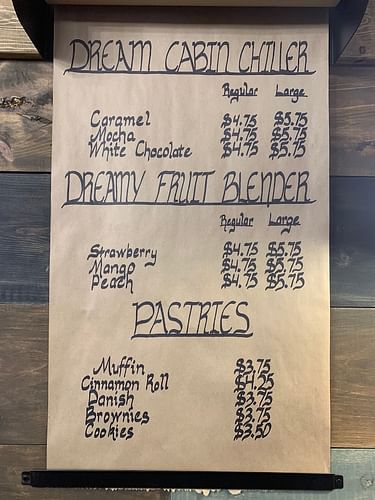 DREAM CABIN CHILLER
Regular Large
Caramel $4.75 $5.75
Mocha $4.75 $5.75
White Chocolate $4.75 $5.75
DREAMY FRUIT BLENDER
Regular Large
Strawberry $4.75 $5.75
Mango $4.75 $5.75
Peach $4.75 $5.75
PASTRIES
Muffin $3.75
Cinnamon Roll $4.25
Danish $3.75
Brownies $3.75
Cookies $3.50